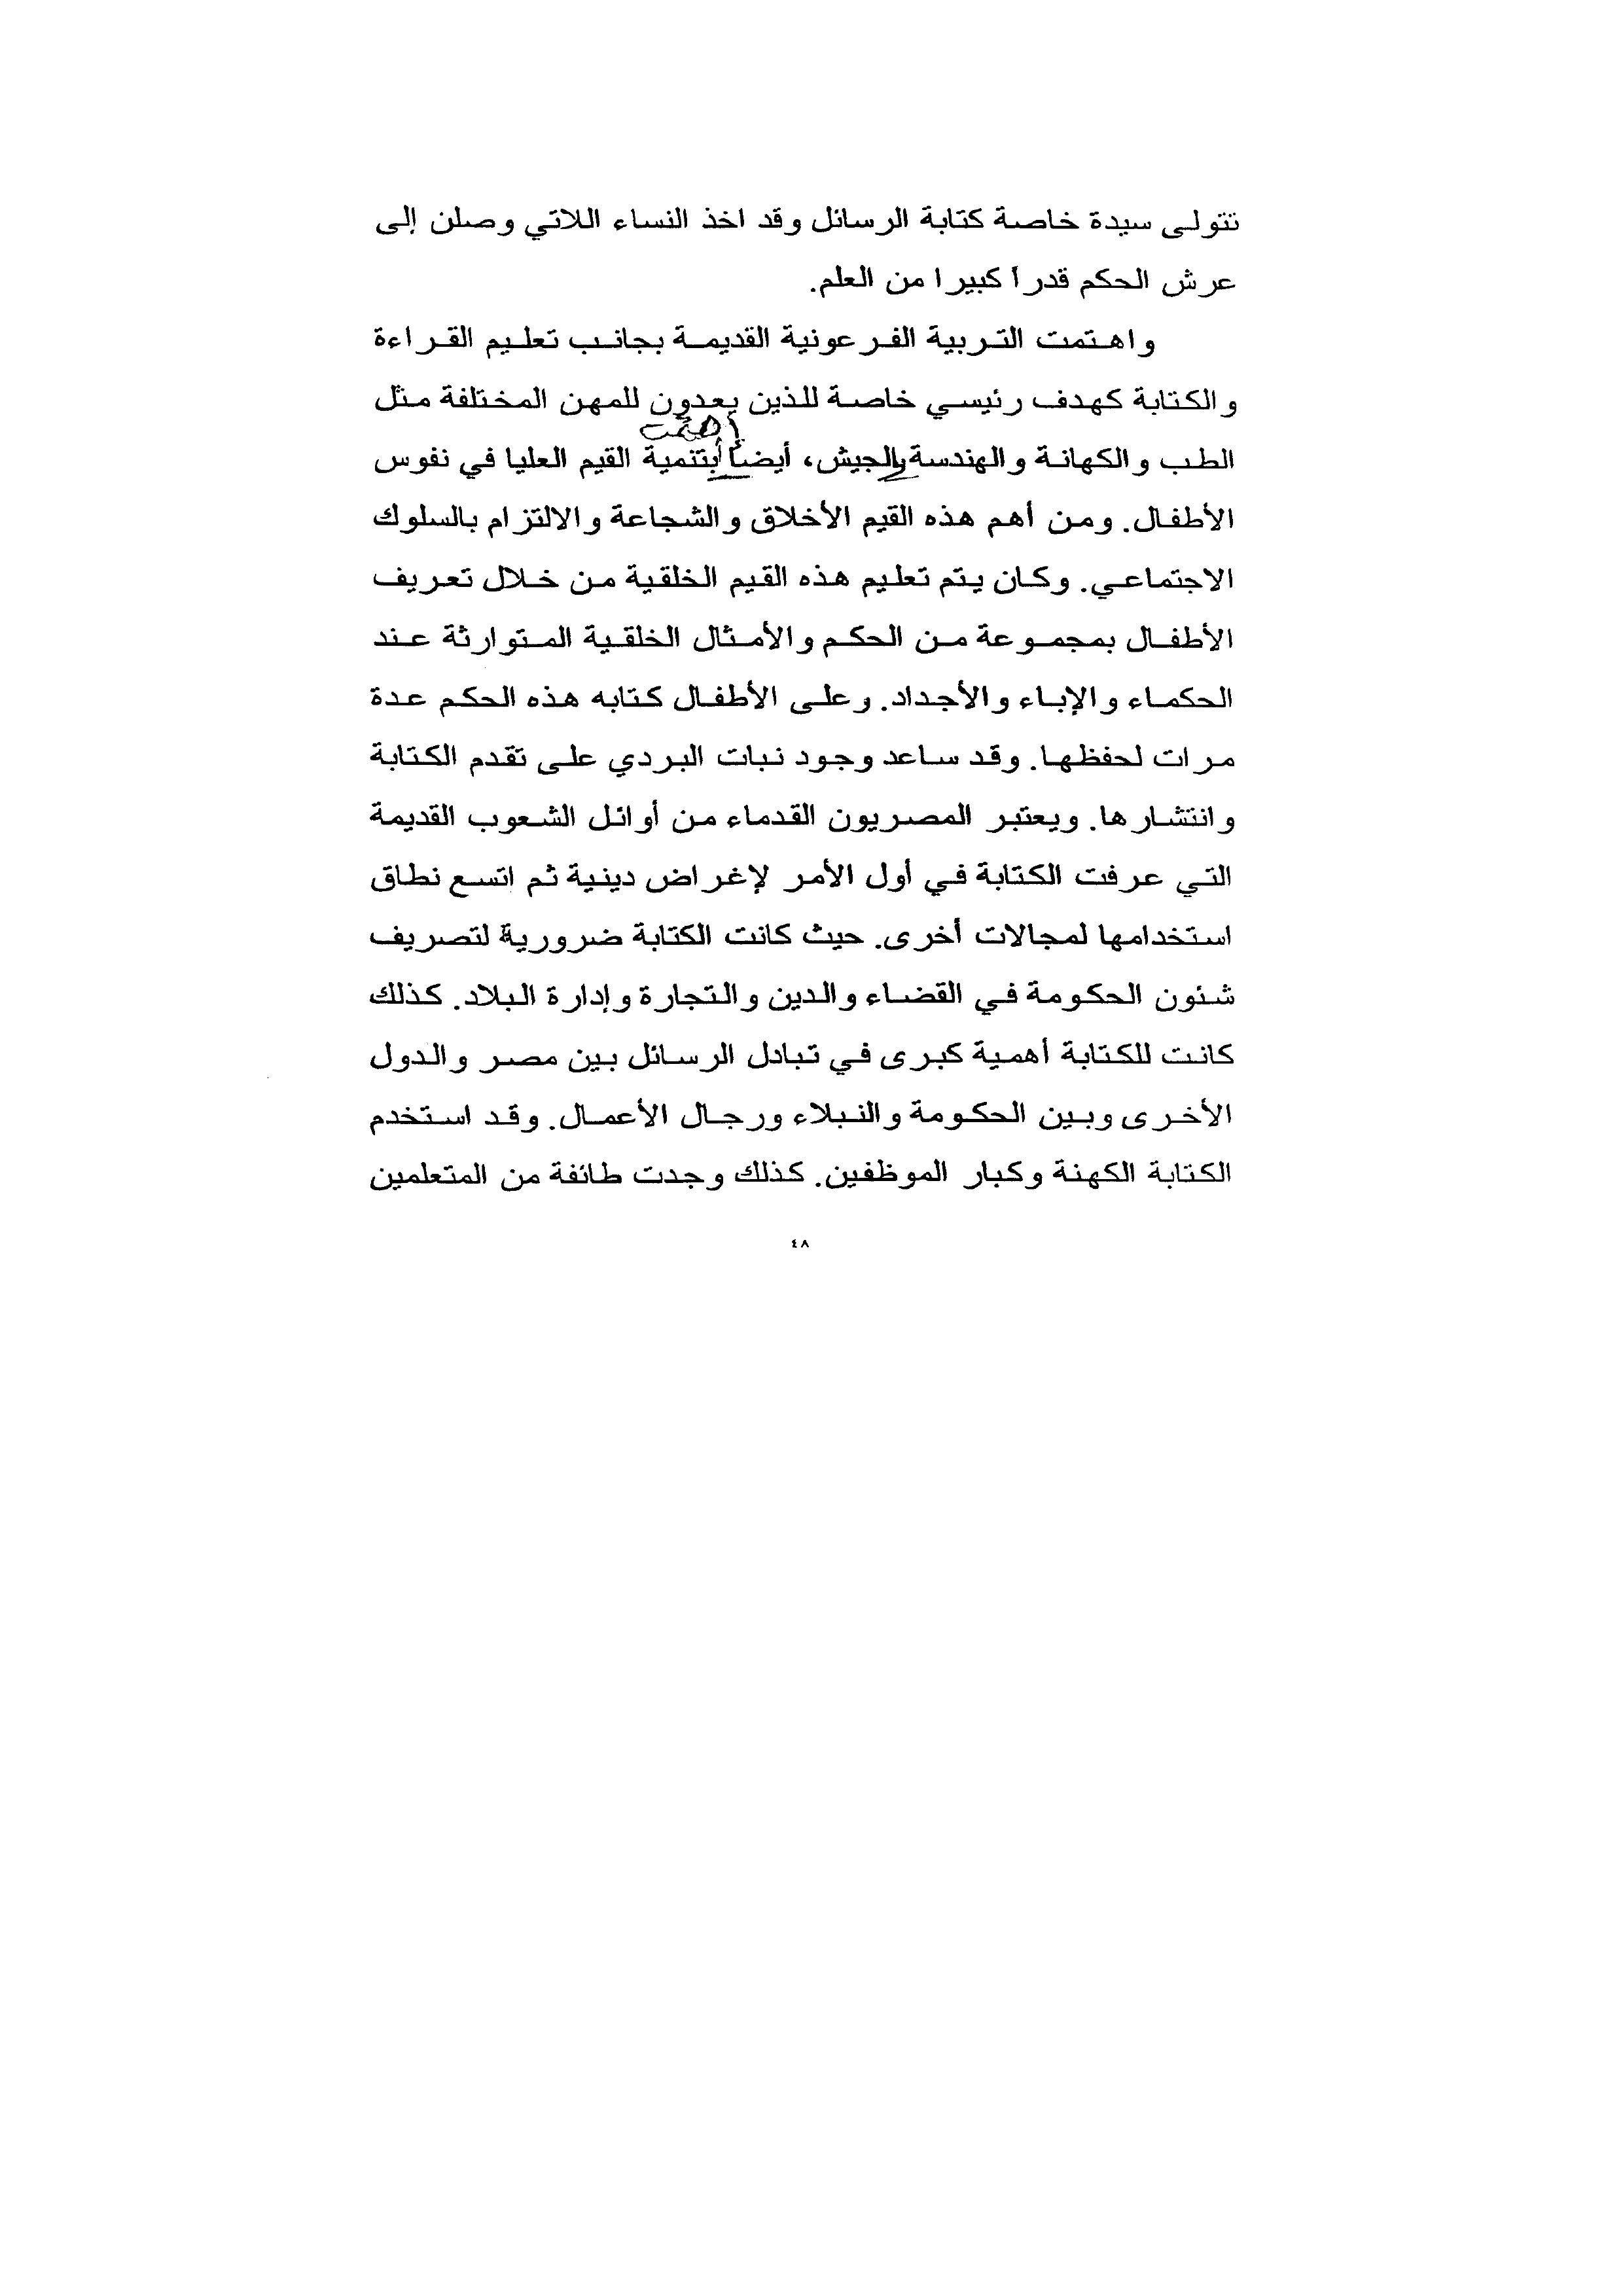 تتولى سيدة خاصة كتابة الرسائل وقد اخذ النساء اللاتي وصلن إلى
عرش الحكم قدراً كبيرا من العلم.
واهتمت التربية الفرعونية القديمة بجانب تعليم القراءة
والكتابة كهدف رئيسي خاصة للذين يعدون للمهن المختلفة مثل
اهتمت
الطب والكهانة والهندسة والجيش، أيضاً بتنمية القيم العليا في نفوس
الأطفال. ومن أهم هذه القيم الأخلاق والشجاعة والالتزام بالسلوك
الاجتماعي. وكان يتم تعليم هذه القيم الخلقية من خلال تعريف
الأطفال بمجموعة من الحكم والأمثال الخلقية المتوارثة عند
الحكماء والإباء والأجداد. وعلى الأطفال كتابه هذه الحكم عدة
مرات لحفظها. وقد ساعد وجود نبات البردي على تقدم الكتابة
وانتشارها. ويعتبر المصريون القدماء من أوائل الشعوب القديمة
التي عرفت الكتابة في أول الأمر لإغراض دينية ثم اتسع نطاق
استخدامها لمجالات أخرى. حيث كانت الكتابة ضرورية لتصريف
شئون الحكومة في القضاء والدين والتجارة وإدارة البلاد. كذلك
كانت للكتابة أهمية كبرى في تبادل الرسائل بين مصر والدول
الأخرى وبين الحكومة والنبلاء ورجال الأعمال. وقد استخدم
الكتابة الكهنة وكبار الموظفين. كذلك وجدت طائفة من المتعلمين
٤٨